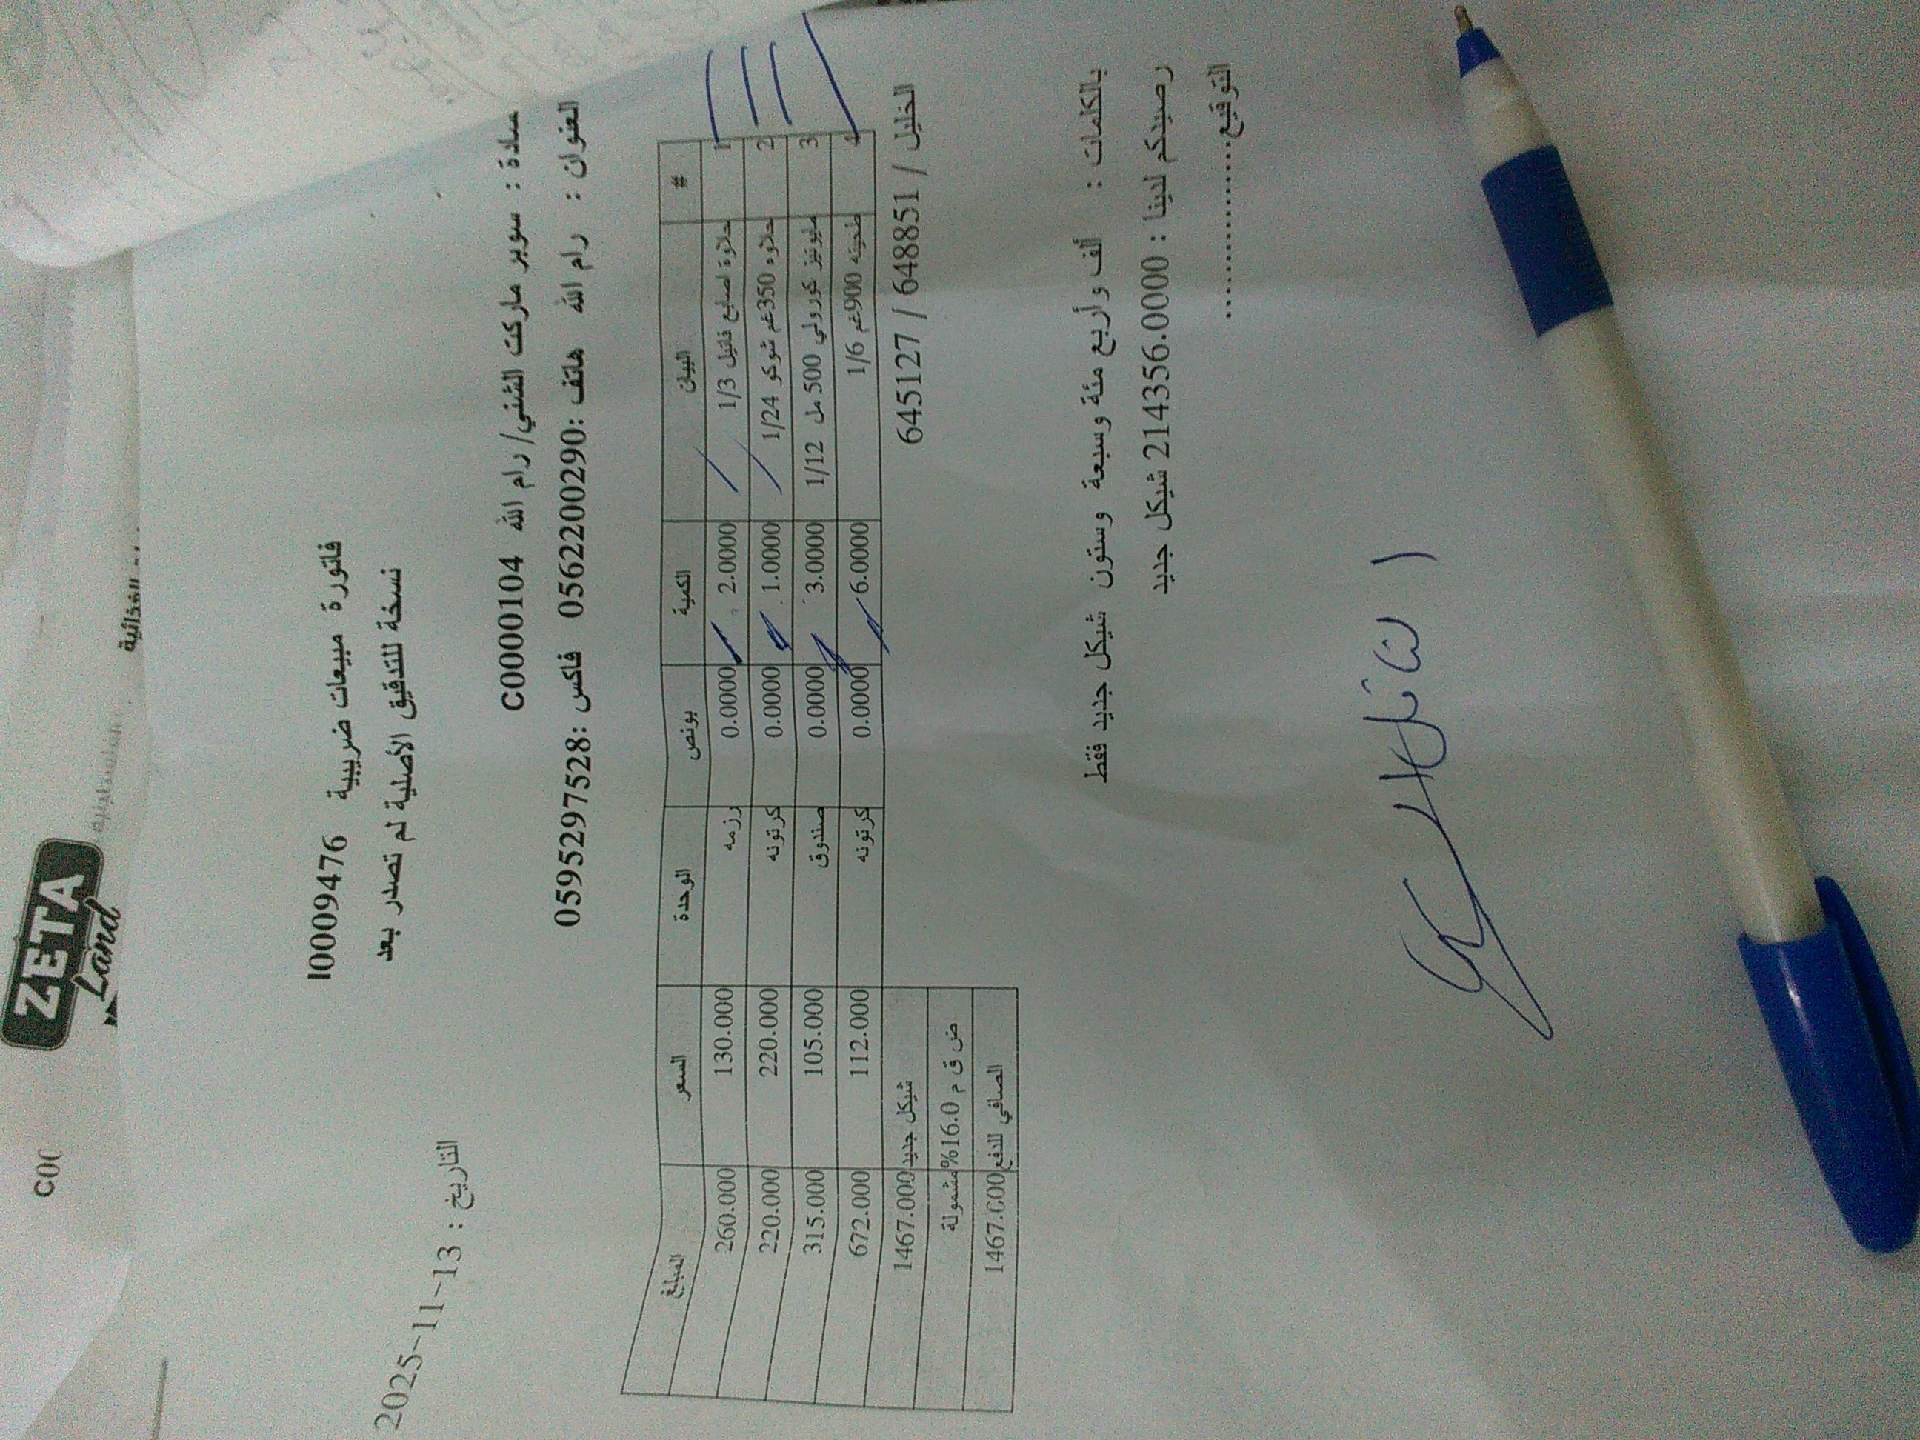 ZETA
Land
C00
الغذائية
فاتورة مبيعات ضريبية I00094​76
نسخة للتدقيق الأصلية لم تصدر بعد
التاريخ : 2025-11-13
سادة : سوبر ماركت الشني/ رام الله C0000104
العنوان : رام الله هاتف :0562200290 فاكس :0595297528
# البيان الكمية بونص الوحدة السعر المبلغ
1 حلاوة اصابع فانيل 1/3 2.0000 0.0000 رزمه 130.000 260.000
2 حلاوه 350غم شوكو 1/24 1.0000 0.0000 كرتونه 220.000 220.000
3 مايونيز كورولي 500 مل 1/12 3.0000 0.0000 صندوق 105.000 315.000
4 طحينه 900غم 1/6 6.0000 0.0000 كرتونه 112.000 672.000
شيكل جديد 1467.000
ض ق م 16.0% مشمولة
الصافي للدفع 1467.000
الخليل / 648851 / 645127
بالكلمات : ألف وأربع مئة وسبعة وستون شيكل جديد فقط
رصيدكم لدينا : 214356.0000 شيكل جديد
التوقيع...................